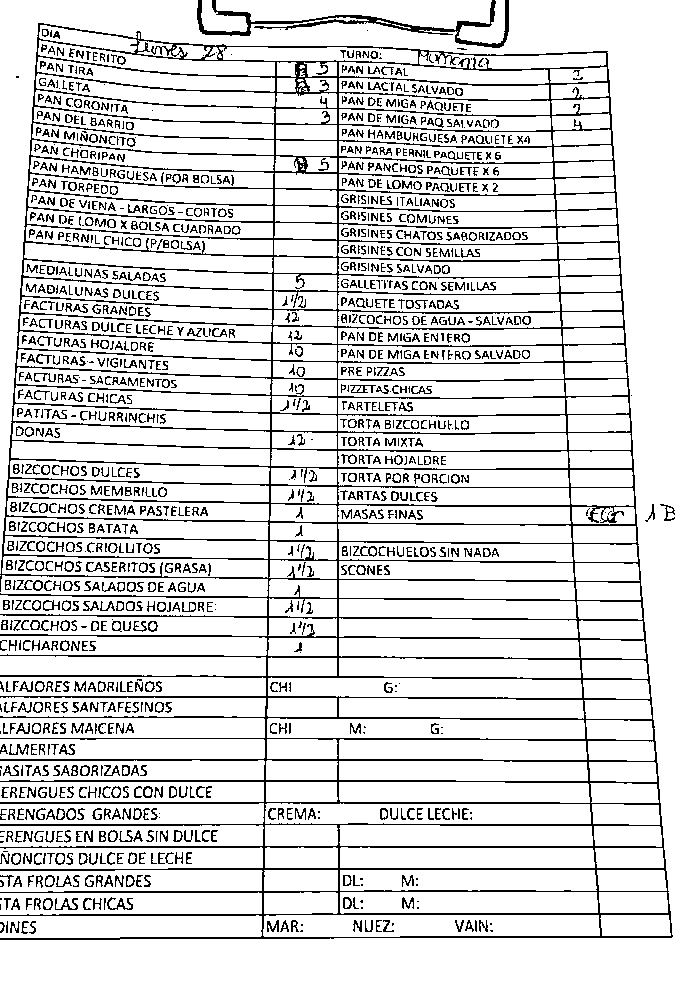 DIA lunes 28 TURNO: Mañana
PAN ENTERITO 5 PAN LACTAL 2
PAN TIRA 3 PAN LACTAL SALVADO 2
GALLETA 4 PAN DE MIGA PAQUETE 2
PAN CORONITA 3 PAN DE MIGA PAQ SALVADO 4
PAN DEL BARRIO PAN HAMBURGUESA PAQUETE X4
PAN MIÑONCITO PAN PARA PERNIL PAQUETE X 6
PAN CHORIPAN 5 PAN PANCHOS PAQUETE X 6
PAN HAMBURGUESA (POR BOLSA) PAN DE LOMO PAQUETE X 2
PAN TORPEDO GRISINES ITALIANOS
PAN DE VIENA - LARGOS - CORTOS GRISINES COMUNES
PAN DE LOMO X BOLSA CUADRADO GRISINES CHATOS SABORIZADOS
PAN PERNIL CHICO (P/BOLSA) GRISINES CON SEMILLAS
GRISINES SALVADO
MEDIALUNAS SALADAS 5 GALLETITAS CON SEMILLAS
MADIALUNAS DULCES 1 1/2 PAQUETE TOSTADAS
FACTURAS GRANDES 12 BIZCOCHOS DE AGUA - SALVADO
FACTURAS DULCE LECHE Y AZUCAR 12 PAN DE MIGA ENTERO
FACTURAS HOJALDRE 10 PAN DE MIGA ENTERO SALVADO
FACTURAS - VIGILANTES 10 PRE PIZZAS
FACTURAS - SACRAMENTOS 10 PIZZETAS CHICAS
FACTURAS CHICAS 1 1/2 TARTELETAS
PATITAS - CHURRINCHIS TORTA BIZCOCHUELO
DONAS 12 TORTA MIXTA
TORTA HOJALDRE
BIZCOCHOS DULCES 1 1/2 TORTA POR PORCION
BIZCOCHOS MEMBRILLO 1 1/2 TARTAS DULCES
BIZCOCHOS CREMA PASTELERA 1 MASAS FINAS 1 B
BIZCOCHOS BATATA 1
BIZCOCHOS CRIOLLITOS 1 1/2 BIZCOCHUELOS SIN NADA
BIZCOCHOS CASERITOS (GRASA) 1 1/2 SCONES
BIZCOCHOS SALADOS DE AGUA 1
BIZCOCHOS SALADOS HOJALDRE: 1 1/2
BIZCOCHOS - DE QUESO 1 1/2
CHICHARONES 1
ALFAJORES MADRILEÑOS CHI G:
ALFAJORES SANTAFESINOS
ALFAJORES MAICENA CHI M: G:
ALMERITAS
ASITAS SABORIZADAS
ERENGUES CHICOS CON DULCE
ERENGADOS GRANDES: CREMA: DULCE LECHE:
ERENGUES EN BOLSA SIN DULCE
ÑONCITOS DULCE DE LECHE
STA FROLAS GRANDES DL: M:
STA FROLAS CHICAS DL: M:
DINES MAR: NUEZ: VAIN: